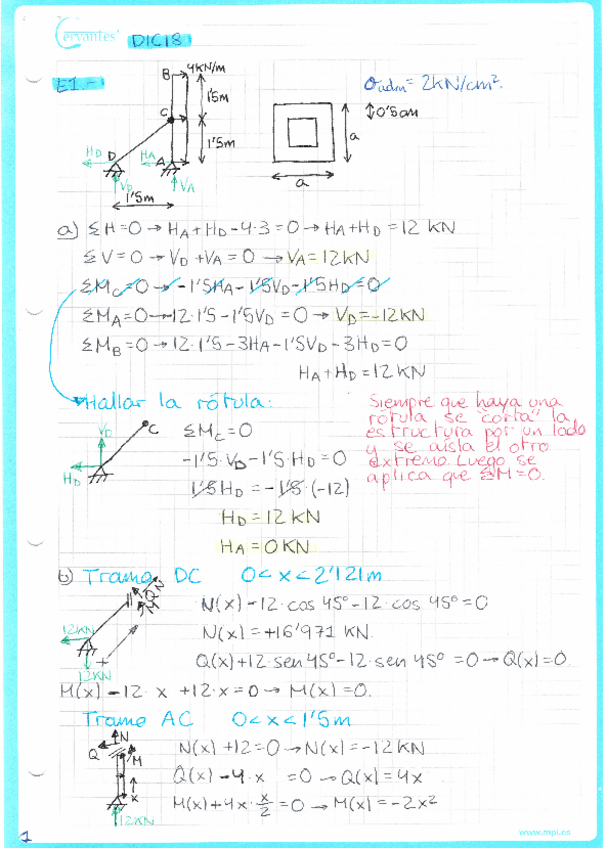 Cervantes
DIC18
E1.-
B 4KN/m
1'5m
C
1'5m
HD D HA A
VD VA
1'5m
a
a
0'5cm
σadm = 2KN/cm².
a) ΣH=0 → HA+HD-4·3=0 → HA+HD=12 KN
ΣV=0 → VD+VA=0 → VA=12KN
ΣMC=0 → -1'5HA-1'5VD-1'5HD=0
ΣMA=0 → 12·1'5-1'5VD=0 → VD=-12KN
ΣMB=0 → 12·1'5-3HA-1'5VD-3HD=0
HA+HD=12KN
Hallar la rótula:
VD C
HD
ΣMC=0
-1'5·VD-1'5·HD=0
1'5HD=-1'5·(-12)
HD=12 KN
HA=0KN
Siempre que haya una
rótula se "corta" la
estructura por un lado
y se aísla el otro
extremo. Luego se
aplica que ΣM=0.
b) Tramo DC 0<x<2'121m
N
Q
M
12KN
12KN
N(x)-12·cos 45º-12·cos 45º=0
N(x)=+16'971 KN.
Q(x)+12·sen 45º-12·sen 45º=0 → Q(x)=0
M(x)-12·x+12·x=0 → M(x)=0.
Tramo AC 0<x<1'5m
N
Q M
x
12KN
N(x)+12=0 → N(x)=-12KN
Q(x)-4·x=0 → Q(x)=4x
M(x)+4x·x/2=0 → M(x)=-2x²
1
www.mpi.es